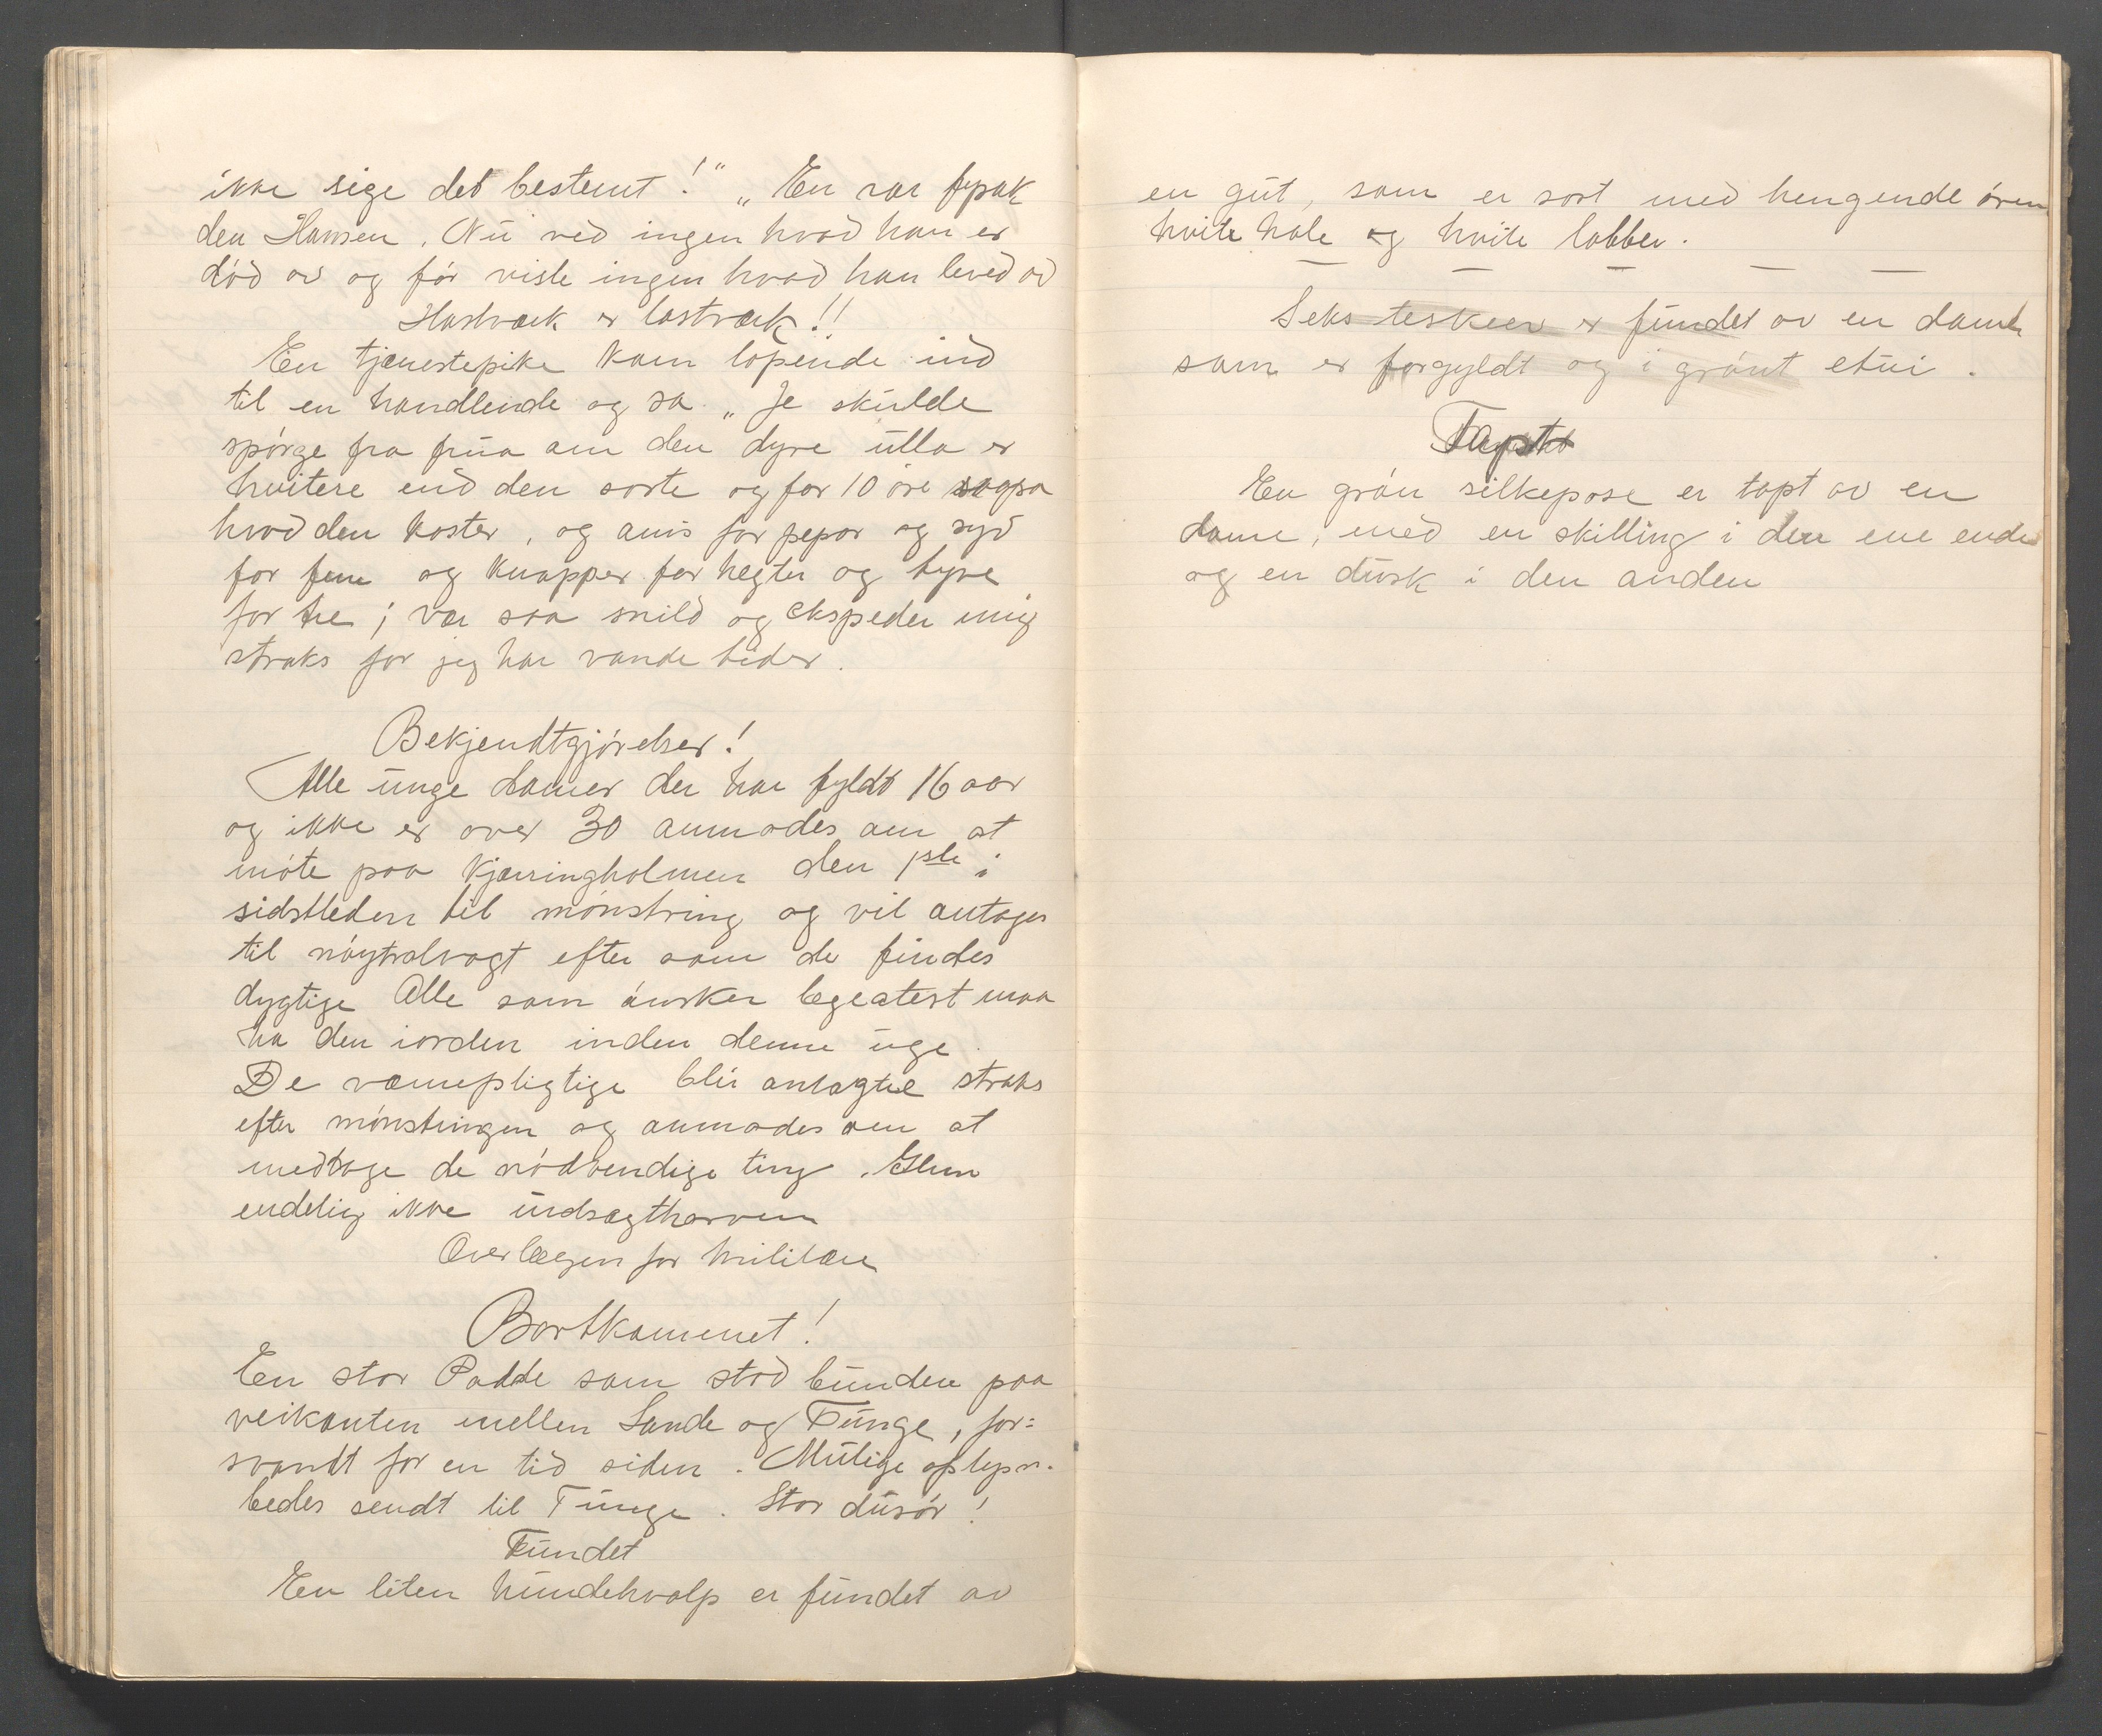 ikke sige det bestemt!" „En rar fysak
den Hansen. Nu ved ingen hvad han er
død av og før viste ingen hvad han leved av
Hastværk er lastværk!!
En tjenestepike kom løpende ind
til en handlende og sa „Je skulde
spørge fra frua om den dyre ulla er
hvitere end den sorte og for 10 øre sagpa
hvad den koster, og anis for pepar og syd
for fem og knapper for hegter og tyve
for tre; vær saa snild og ekspeder mig
straks for jeg har vande tider.
Bekjendtgjørelser!
Alle unge damer der har fyldt 16 aar
og ikke er over 30 anmodes om at
møte paa Kjærringholmen den 1ste i
sidstleden til mønstring og vil antages
til nøytralvagt efter som de findes
dygtige Alle som ønsker lægeatest maa
ha den iorden inden denne uge.
De værnepligtige blir antagne straks
efter mønstringen og anmodes om at
medtage de nødvendige ting. Glem
endelig ikke
Overlægen for militære
Bortkommet!
En stor Padde som stod bunden paa
veikanten mellem Sande og Tunge, for=
svandt for en tid siden. Mulige oplysn.
bedes sendt til Tunge. Stor dusør!
Fundet
En liten hundehvalp er fundet av
en gut, som er sort med hengende øren
hvite hale og hvite labber.
Seks teskeer er fundet av en dame
som er forgyldt og i grønt etui.
Tapt
En grøn silkepose er tapt av en
dame, med en skilling i den ene ende
og en dusk i den anden